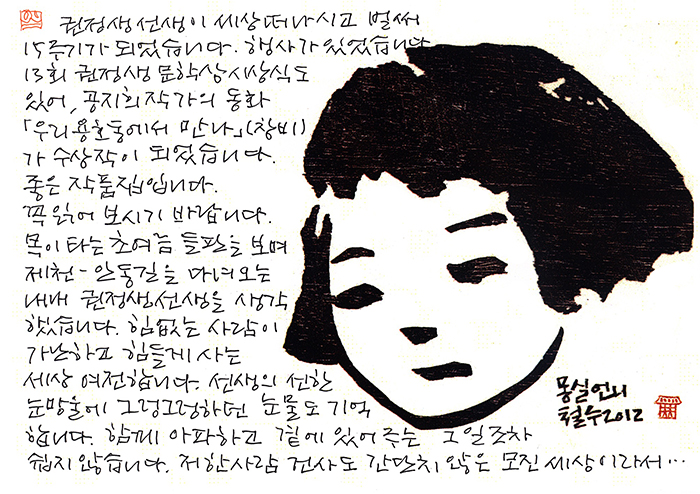 권정생 선생이 세상 떠나시고 벌써
15주기가 되었습니다. 행사가 있었습니다.
13회 권정생 문학상 시상식도
있어, 공지희 작가의 동화
「우리 용호동에서 만나」(창비)
가 수상작이 되었습니다.
좋은 작품집입니다.
꼭 읽어 보시기 바랍니다.
목이 타는 초여름 들판을 보며
제천-안동길을 다녀오는
내내 권정생 선생을 생각
했습니다. 힘없는 사람이
가난하고 힘들게 사는
세상 여전합니다. 선생의 선한
눈망울에 그렁그렁하던 눈물도 기억
합니다. 함께 아파하고 곁에 있어 주는 그 일조차
쉽지 않습니다. 저 한사람 건사도 간단치 않은 모진 세상이라서…
몽실언니
철수 2012